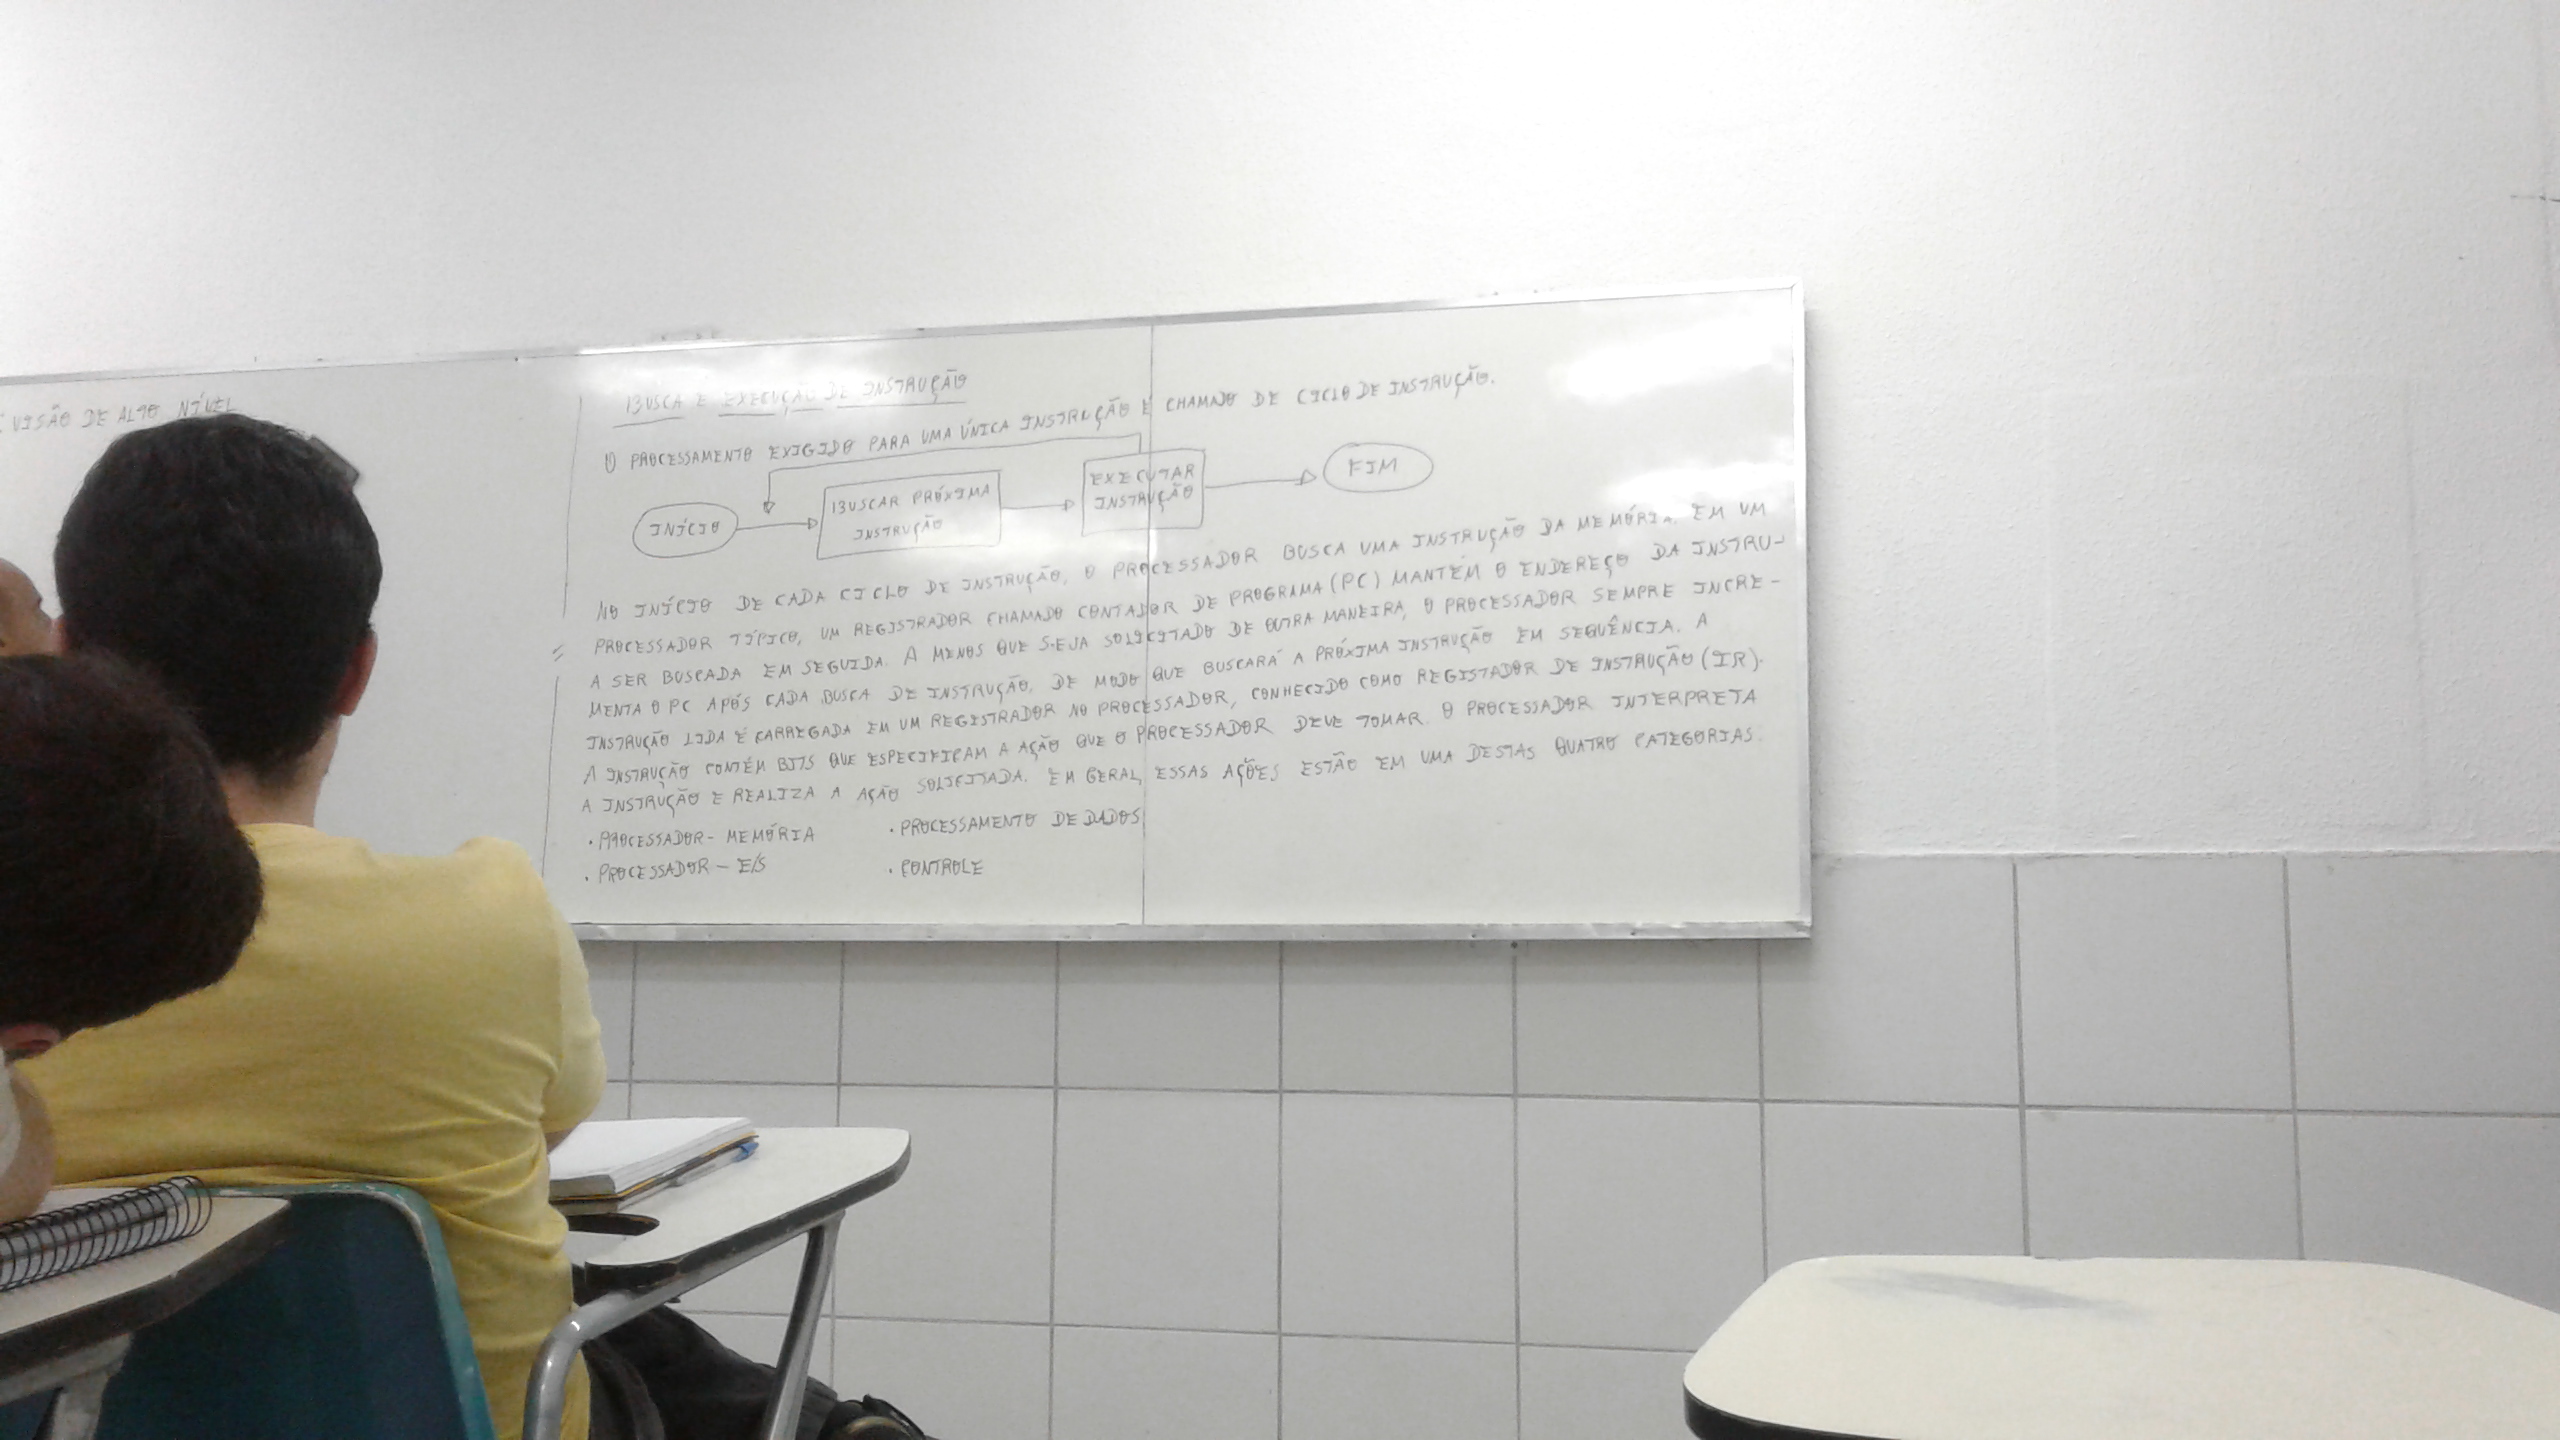 VISÃO DE ALTO NÍVEL
BUSCA E EXECUÇÃO DE INSTRUÇÃO
O PROCESSAMENTO EXIGIDO PARA UMA ÚNICA INSTRUÇÃO É CHAMADO DE CICLO DE INSTRUÇÃO.
INÍCIO
BUSCAR PRÓXIMA
INSTRUÇÃO
EXECUTAR
INSTRUÇÃO
FIM
NO INÍCIO DE CADA CICLO DE INSTRUÇÃO, O PROCESSADOR BUSCA UMA INSTRUÇÃO DA MEMÓRIA. EM UM
PROCESSADOR TÍPICO, UM REGISTRADOR CHAMADO CONTADOR DE PROGRAMA (PC) MANTÉM O ENDEREÇO DA INSTRU-
A SER BUSCADA EM SEGUIDA. A MENOS QUE SEJA SOLICITADO DE OUTRA MANEIRA, O PROCESSADOR SEMPRE INCRE-
MENTA O PC APÓS CADA BUSCA DE INSTRUÇÃO, DE MODO QUE BUSCARÁ A PRÓXIMA INSTRUÇÃO EM SEQUÊNCIA. A
INSTRUÇÃO LIDA É CARREGADA EM UM REGISTRADOR NO PROCESSADOR, CONHECIDO COMO REGISTADOR DE INSTRUÇÃO (IR).
A INSTRUÇÃO CONTÉM BITS QUE ESPECIFICAM A AÇÃO QUE O PROCESSADOR DEVE TOMAR. O PROCESSADOR INTERPRETA
A INSTRUÇÃO E REALIZA A AÇÃO SOLICITADA. EM GERAL, ESSAS AÇÕES ESTÃO EM UMA DESTAS QUATRO CATEGORIAS.
• PROCESSADOR - MEMÓRIA
• PROCESSAMENTO DE DADOS
• PROCESSADOR - E/S
• CONTROLE